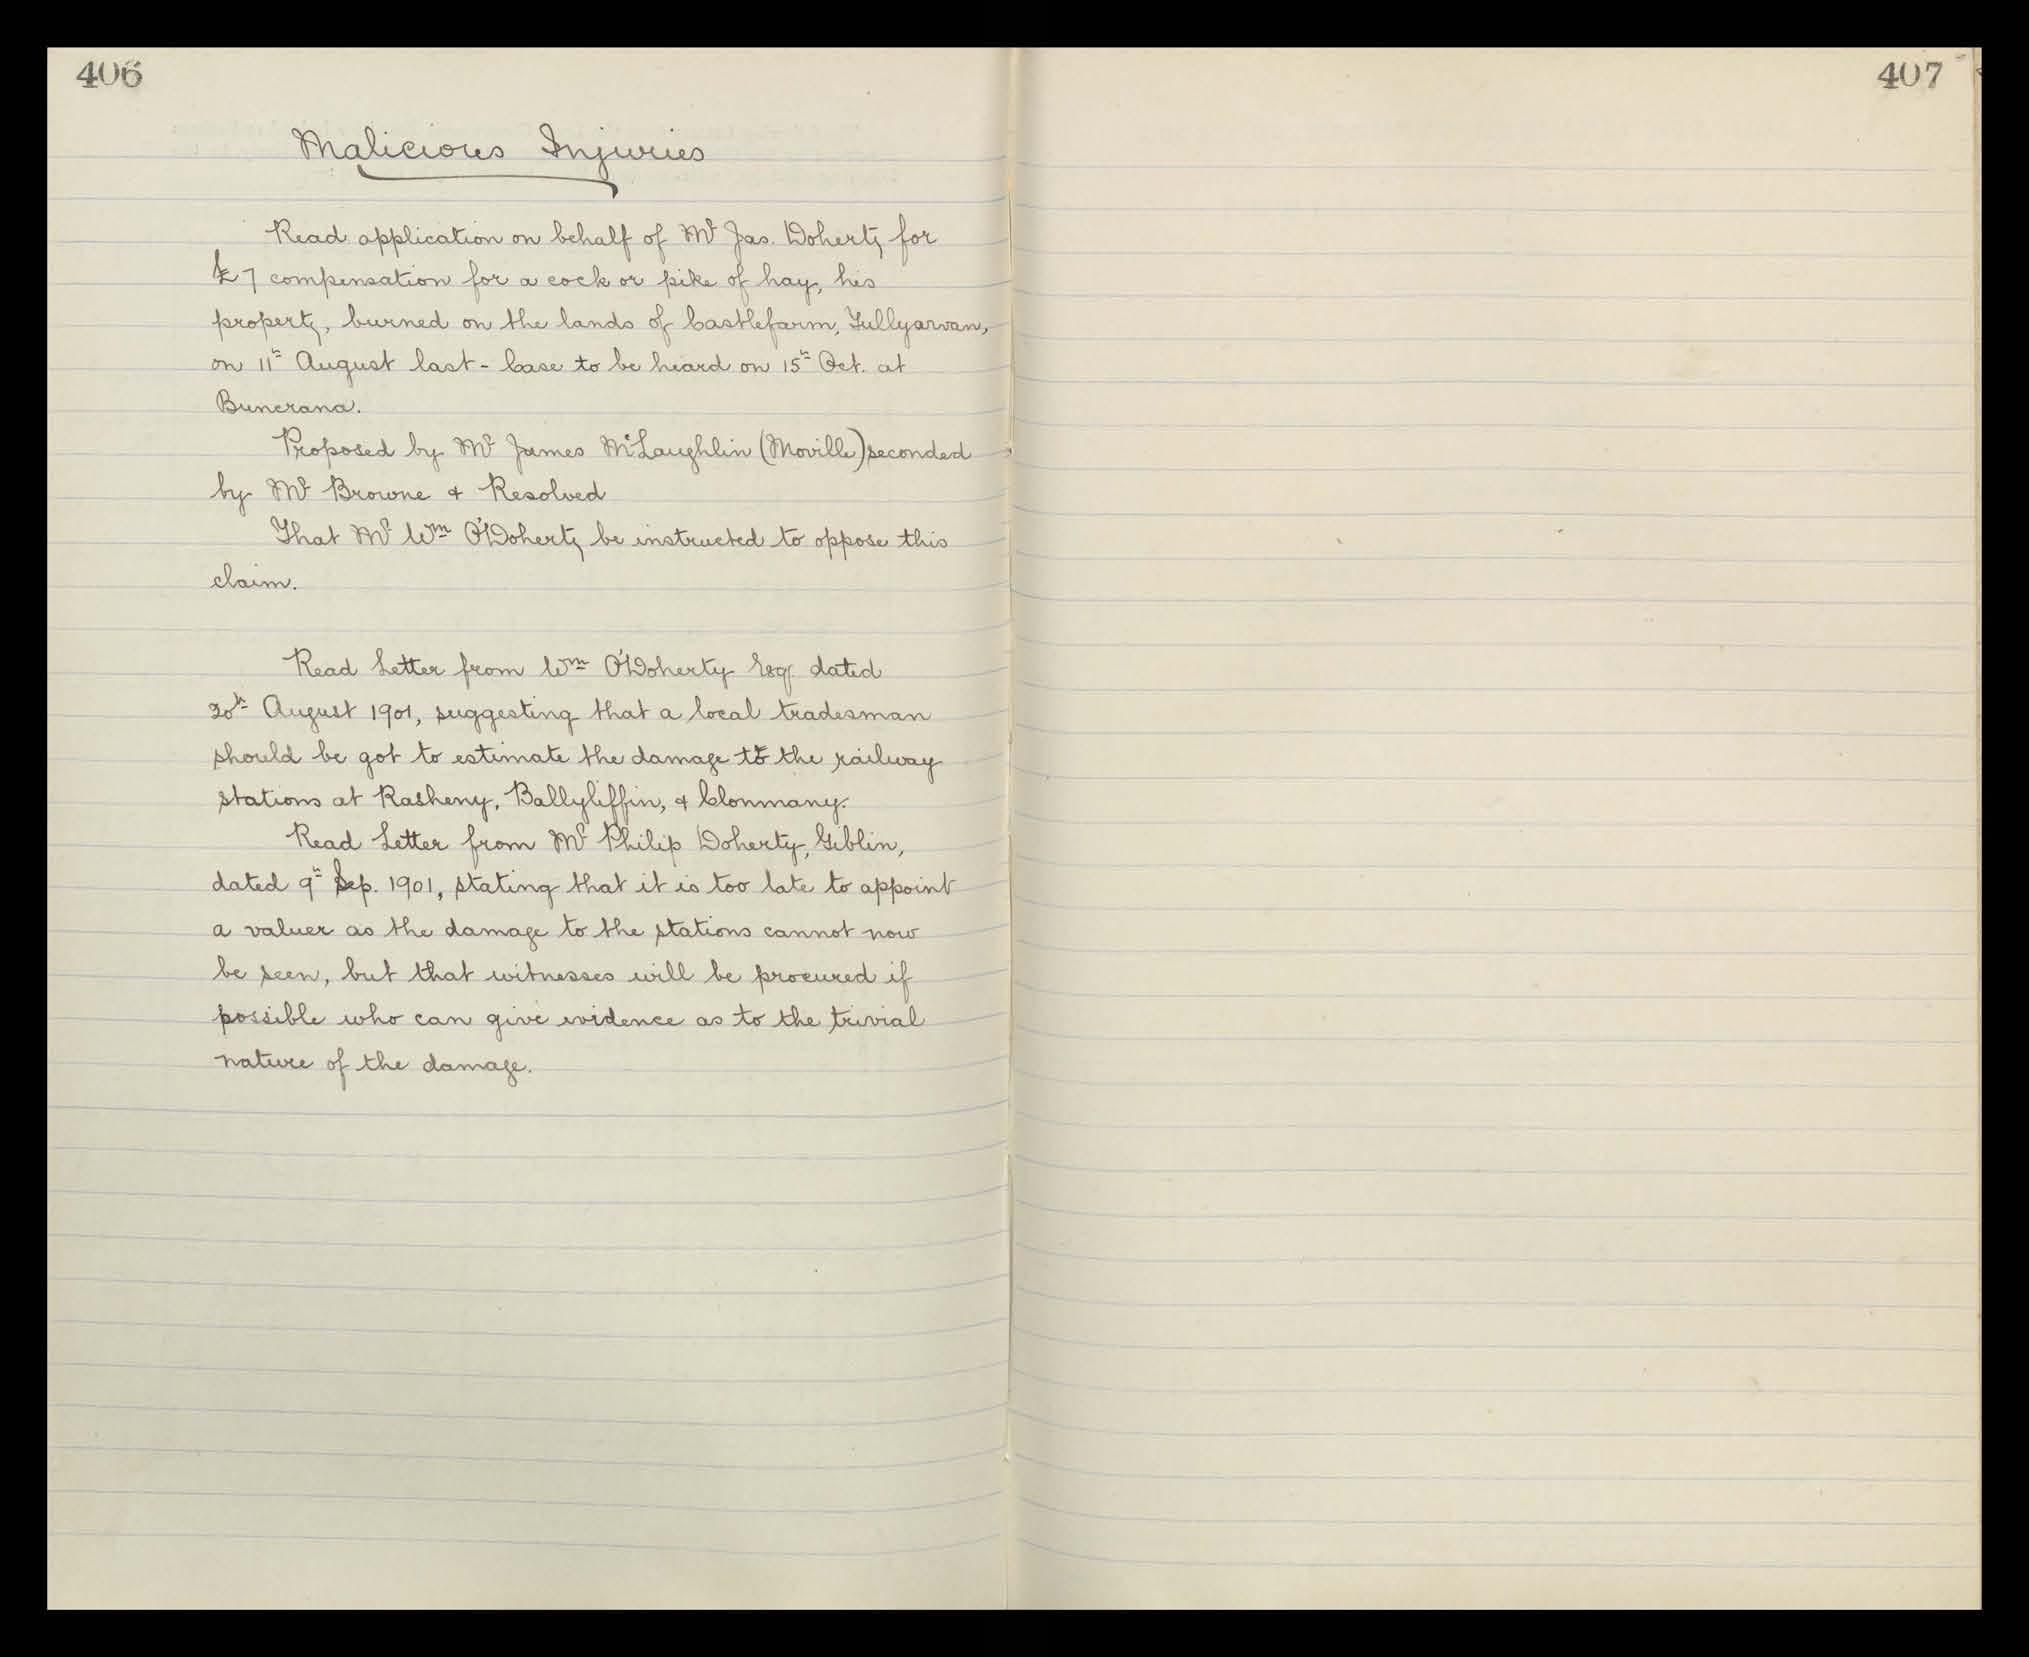 406
Malicious Injuries
Read application on behalf of Mr Jas. Doherty for
£7 compensation for a cock or pike of hay, his
property, burned on the lands of Castlefarm, Tullyarvan,
on 11th August last - Case to be heard on 15th Oct. at
Buncrana.
Proposed by Mr James McLaughlin (Moville) seconded
by Mr Browne & Resolved
That Mr Wm O'Doherty be instructed to oppose this
claim.
Read Letter from Wm O'Doherty Esq. dated
20th August 1901, suggesting that a local tradesman
should be got to estimate the damage to the railway
stations at Rasheny, Ballyliffin, & Clonmany.
Read Letter from Mr Philip Doherty, Giblin,
dated 9th Sep. 1901, stating that it is too late to appoint
a valuer as the damage to the stations cannot now
be seen, but that witnesses will be procured if
possible who can give evidence as to the trivial
nature of the damage.
407